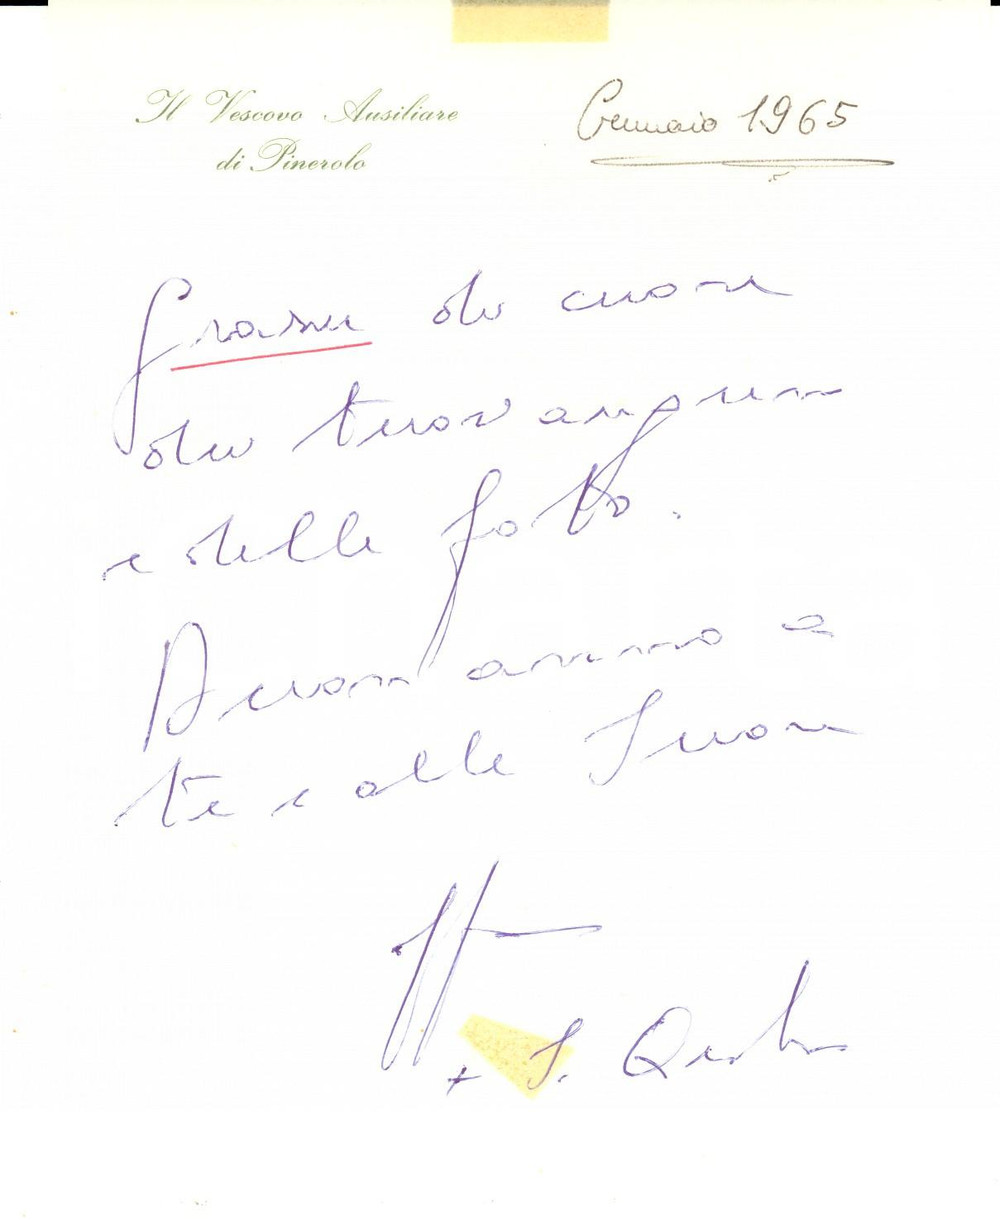 Il Vescovo Ausiliare
di Pinerolo
Gennaio 1965
Grazie di cuore
e delle foto.
Buon anno a
te e alle Suore
+ S.